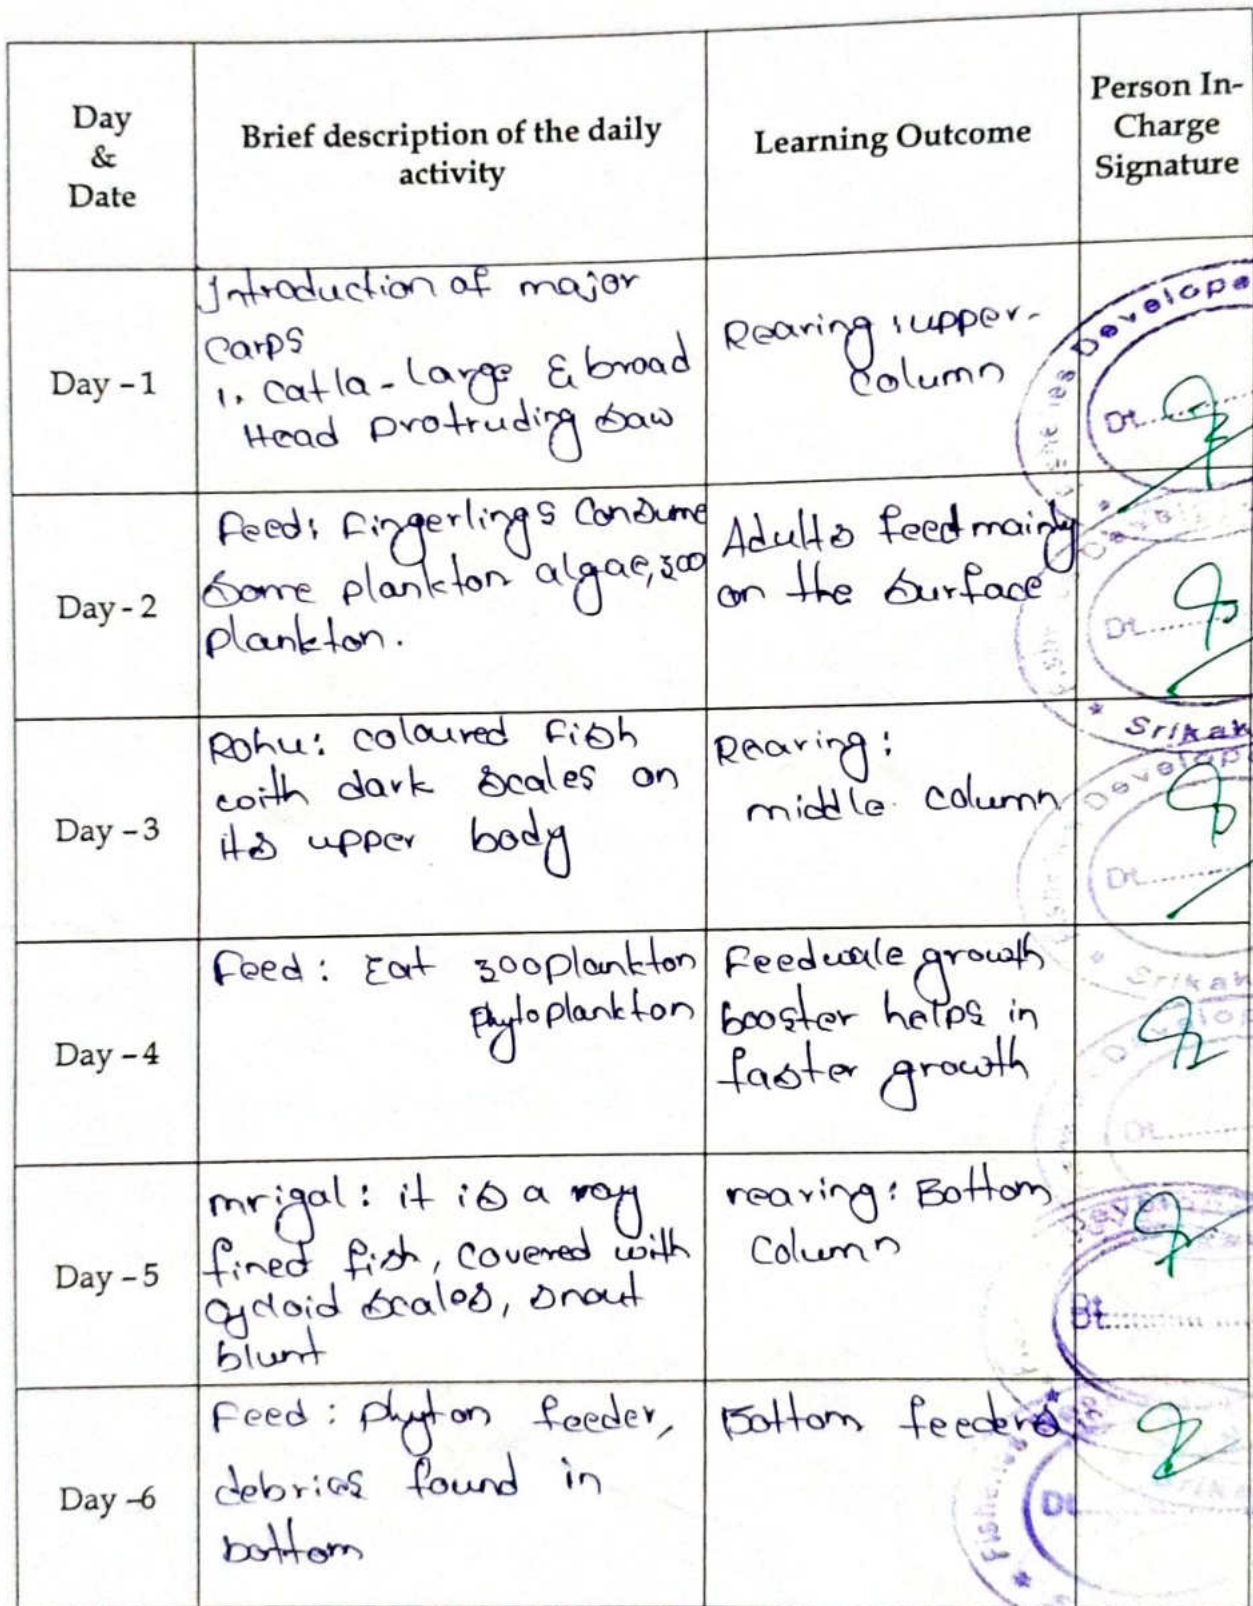 Day
&
Date
Brief description of the daily
activity
Learning Outcome
Person In-
Charge
Signature
Day - 1
Introduction of major
carps
1. catla - large & broad
Head protruding saw
Rearing : upper-
column
Developm
Dt.
Day - 2
Feed: Fingerlings consume
some plankton algae, zoo
plankton.
Adults feed mainly
on the surface
Dt.
Srikak
Day - 3
Rohu: coloured fish
with dark scales on
its upper body
Rearing :
middle column
Develop
Dt.
Srikak
Day - 4
Feed : Eat zooplankton
phytoplankton
Feedwale growth
booster helps in
faster growth
Dt.
Day - 5
mrigal : it is a ray
fined fish, covered with
cycloid scales, snout
blunt
rearing : Bottom
column
Dt.
Day - 6
Feed : phyton feeder,
debries found in
bottom
Bottom feeders
Fisheries
Dt